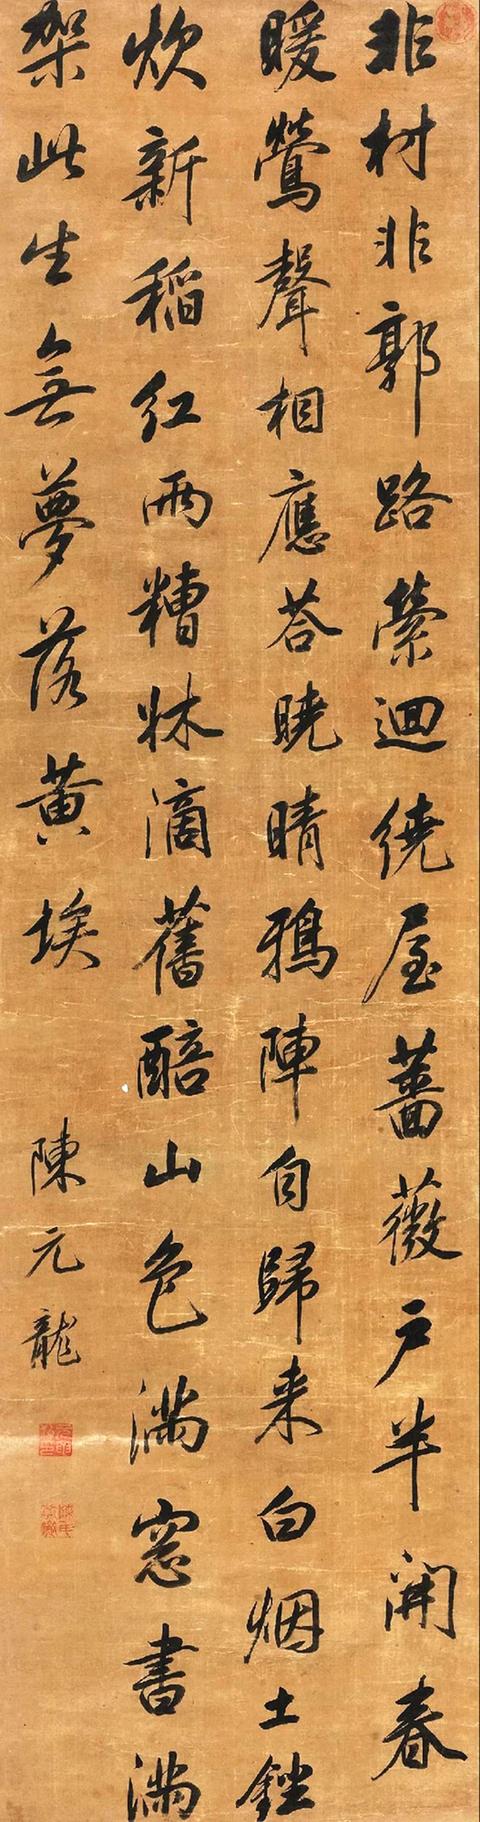 非村非郭路縈迴繞屋薔薇戶半開春
暖鶯聲相應荅曉晴鴉陣自歸来白烟土銼
炊新稻紅雨糟牀滴舊醅山色滿窓書滿
架此生無夢落黃埃
陳元龍